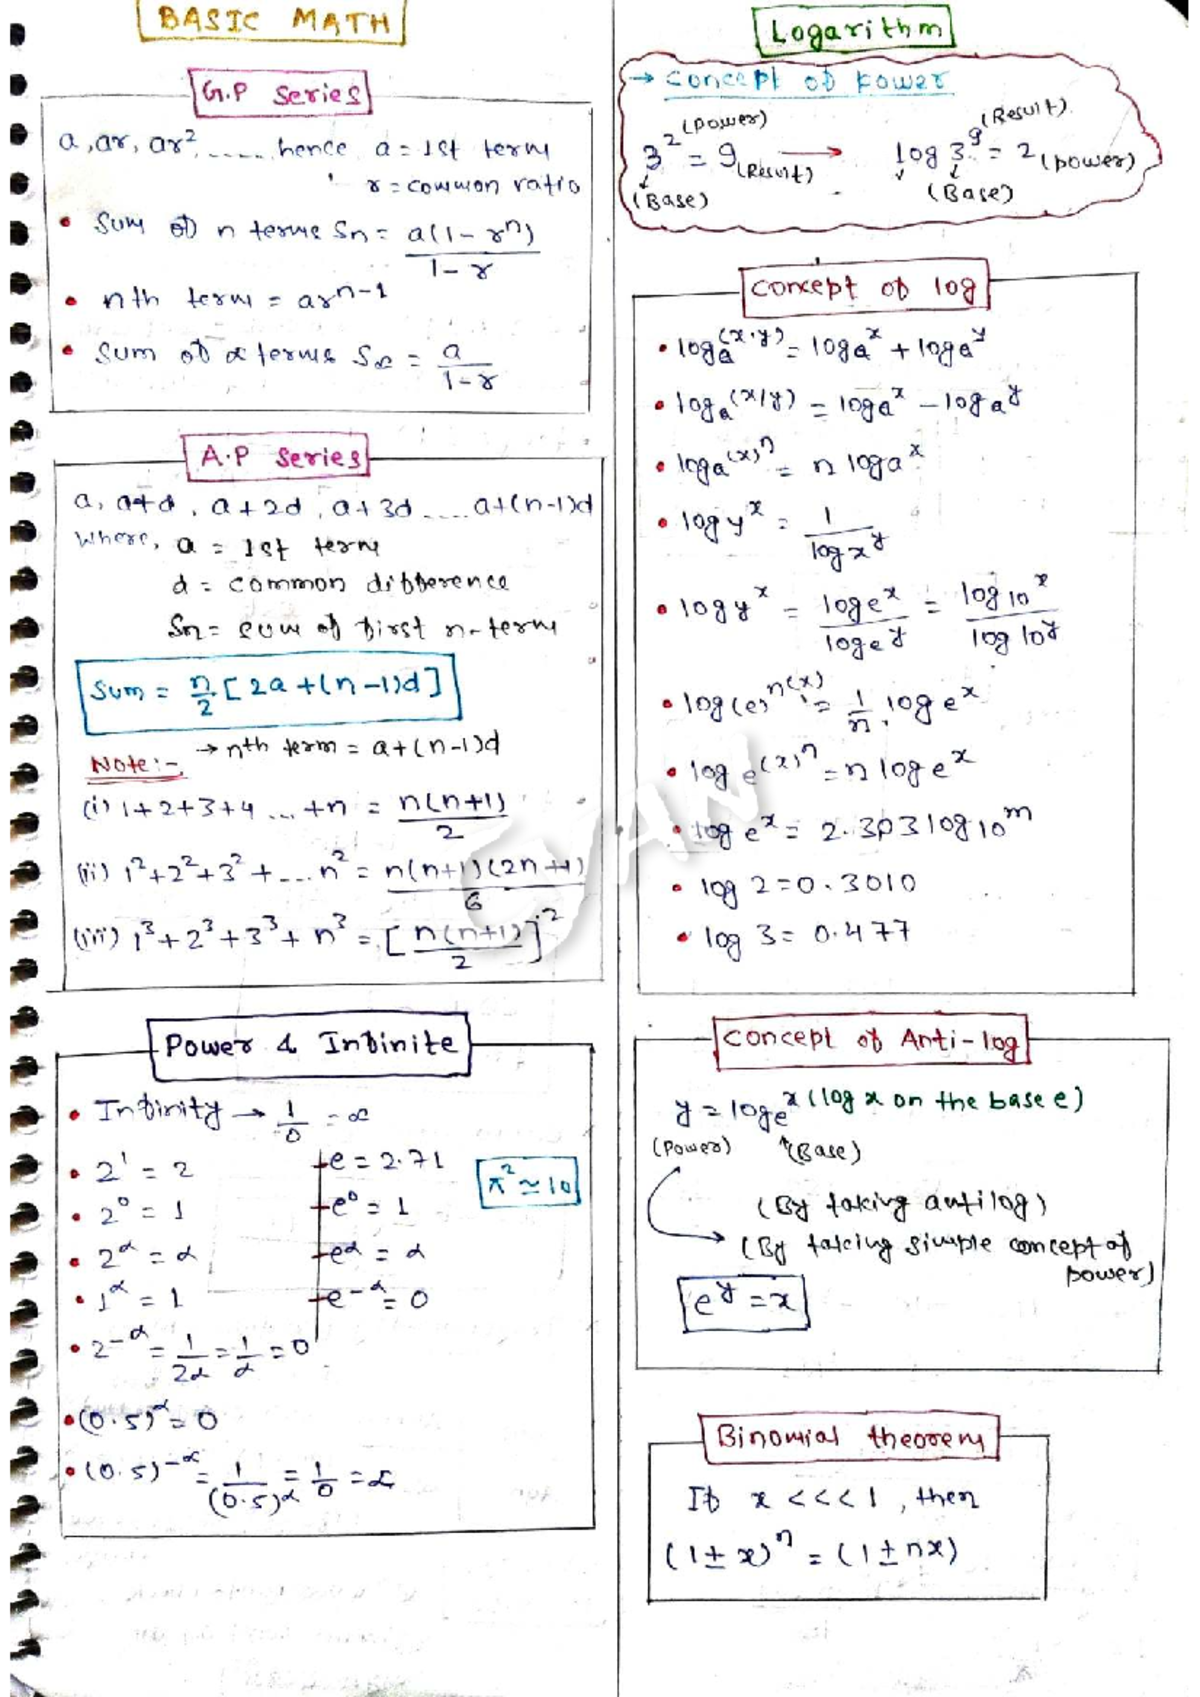 BASIC MATH
G.P Series
a, ar, ar², ..... hence a = 1st term
r = common ratio
• Sum of n terms Sn = a(1-rⁿ)/1-r
• nth term = arⁿ⁻¹
• Sum of ∝ terms S∝ = a/1-r
A.P Series
a, a+d, a+2d, a+3d .... a+(n-1)d
Where, a = 1st term
d = common difference
Sn = sum of first n-term
Sum = n/2 [2a+(n-1)d]
→ nth term = a+(n-1)d
Note:-
(i) 1+2+3+4 ... +n = n(n+1)/2
(ii) 1²+2²+3²+...n² = n(n+1)(2n+1)/6
(iii) 1³+2³+3³+n³ = [n(n+1)/2]²
Power & Infinite
• Infinity → 1/0 = ∝
• 2¹ = 2
• 2⁰ = 1
• 2^∝ = ∝
• 1^∝ = 1
• 2^-∝ = 1/2∝ = 1/∝ = 0
e = 2.71
e⁰ = 1
e^∝ = ∝
e^-∝ = 0
π² ≃ 10
• (0.5)^∝ = 0
• (0.5)^-∝ = 1/(0.5)^∝ = 1/0 = ∝
Logarithm
→ concept of Power
3² (Power) = 9 (Result) → log 3⁹ (Result) = 2 (power)
(Base) (Base)
Concept of log
• logₐ(x·y) = logₐx + logₐy
• logₐ(x/y) = logₐx - logₐy
• logₐ(x)ⁿ = n logₐx
• log y^x = 1/log x^y
• log y^x = log e^x/log e^y = log 10^x/log 10^y
• log(e)n(x) = 1/n log e^x
• log e(x)ⁿ = n log e^x
• log e^x = 2.303 log 10^m
• log 2 = 0.3010
• log 3 = 0.477
Concept of Anti-log
y = log e^x (log x on the base e)
(Power) (Base)
(By taking antilog)
(By taking simple concept of
power)
e^y = x
Binomial theorem
If x <<< 1, then
(1 ± x)ⁿ = (1 ± nx)
CYAN